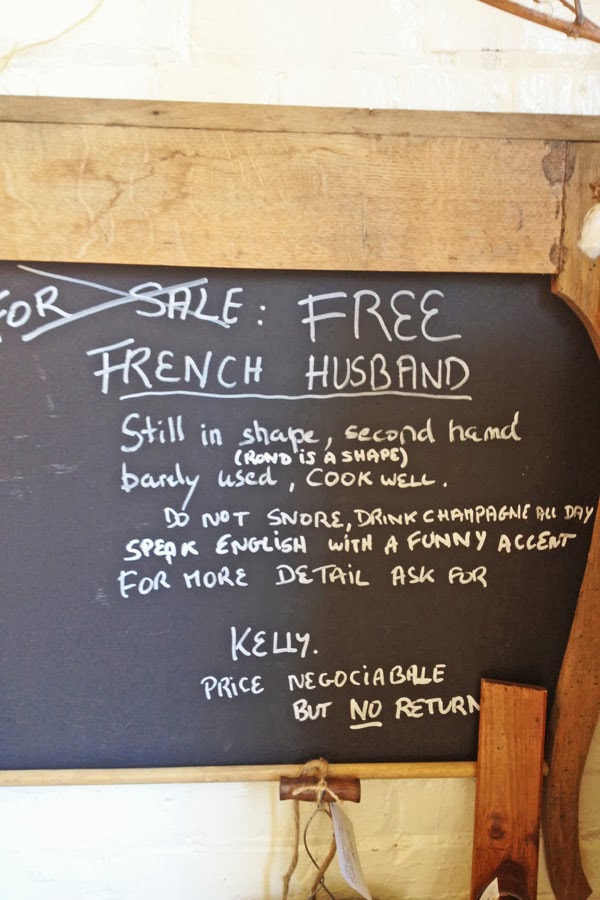 FOR SALE: FREE
FRENCH HUSBAND
Still in shape, second hand
(ROND IS A SHAPE)
barely used, COOK WELL.
DO NOT SNORE, DRINK CHAMPAGNE ALL DAY
SPEAK ENGLISH WITH A FUNNY ACCENT
FOR MORE DETAIL ASK FOR
KELLY.
PRICE NEGOCIABALE
BUT NO RETURN